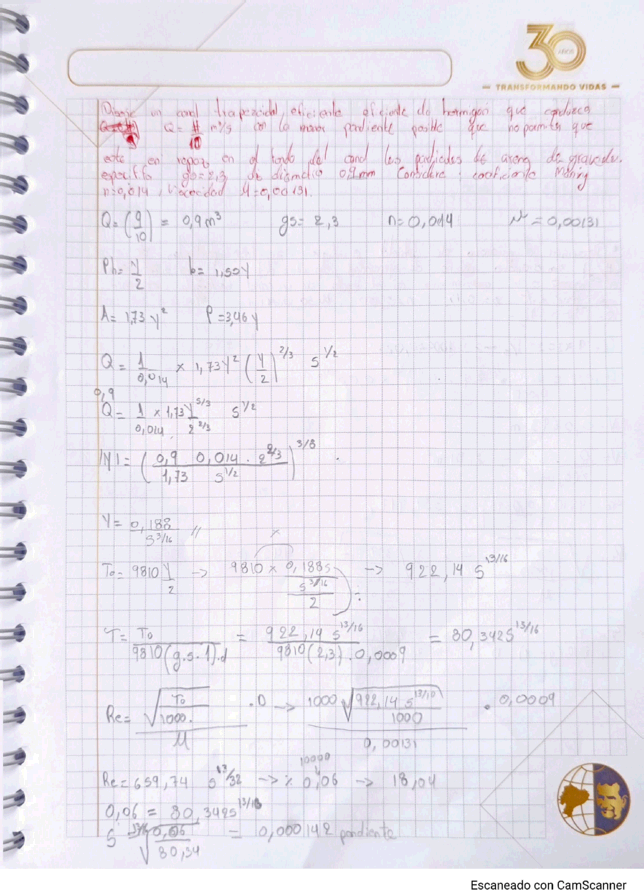 30 AÑOS
TRANSFORMANDO VIDAS
Diseñe un canal trapezoidal eficiente de hormigon que conduzca
Q= 9/10 m³/s con la menor pendiente posible que no permita que
este en reposo en el fondo del canal las particulas de arena de gravedad
especifica gs=2,3 de diametro 0,9mm Considere: coeficiente Manning
n=0,014, Viscocidad M=0,00131.
Q=(9/10) = 0,9m³ gs= 2,3 n=0,014 μ=0,00131
Rh= y/2 b= 1,50Y
A= 1,73 y² P=3,46y
Q= 1/0,014 x 1,73Y² (Y/2)^2/3 S^1/2
0,9
Q= 1/0,014 x 1,73Y^5/3/2^2/3 S^1/2
|Y|= (0,9 0,014 . 2^2/3 / 1,73 S^1/2)^3/8
Y= 0,188/S^3/16 //
To= 9810 Y/2 -> 9810 x 0,188s/S^3/16/2 -> 922,14 S^13/16
T= To/9810(g.s-1).d = 922,14 S^13/16/9810(2,3).0,0009 = 80,342S^13/16
Re= √(To/1000.)/M .D -> 1000√(922,14 S^13/10/1000)/0,00131 . 0,0009
10000
Re= 659,74 S^13/32 -> 0,06 -> 18,04
0,06 = 80,342S^13/16
S 13/16√(0,06/80,34) = 0,000142 pendiente
Escaneado con CamScanner